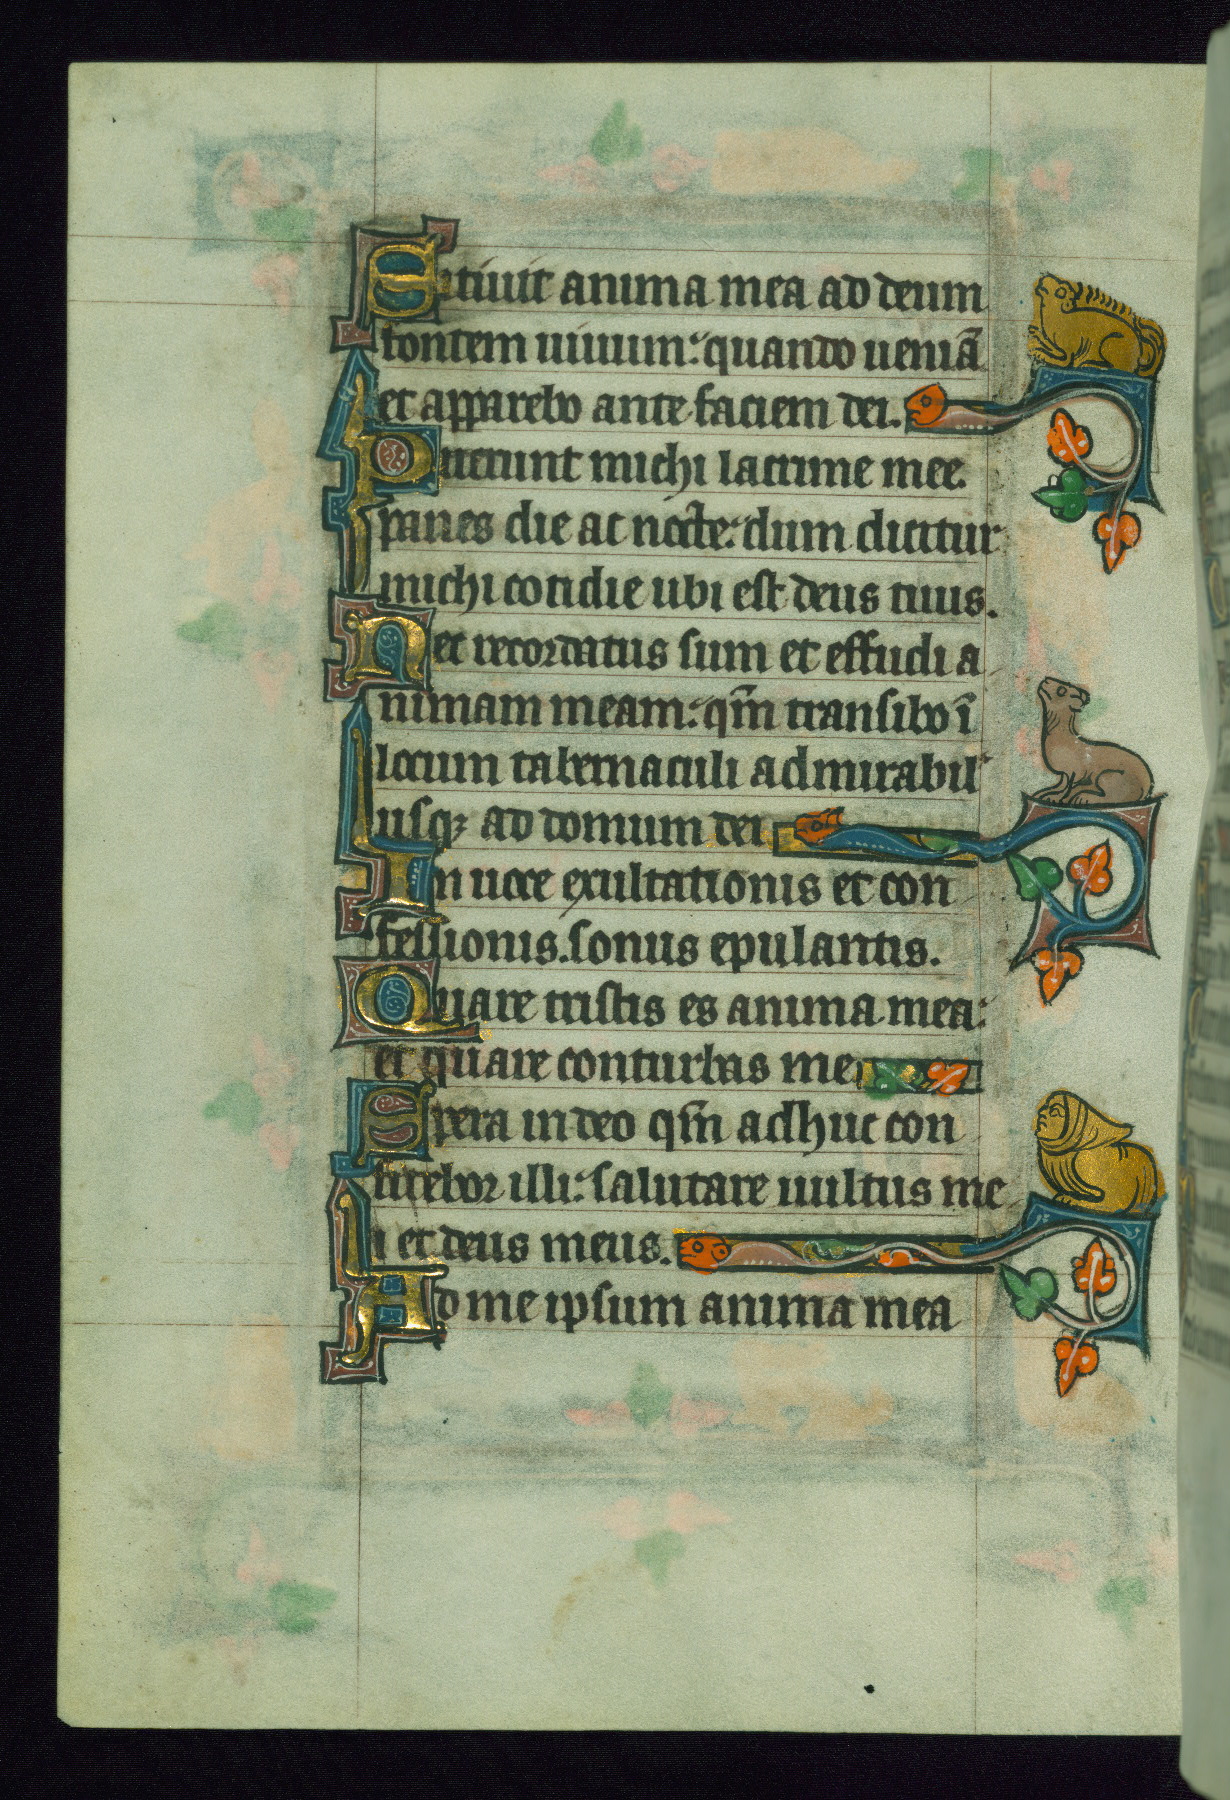 Sitiuit anima mea ad deum
fontem uiuum: quando ueniā
et apparebo ante faciem dei.
Fuerunt michi lacrime mee.
panes die ac nocte: dum dicitur
michi cotidie ubi est deus tuus.
Hec recordatus sum et effudi a
nimam meam: qm̄ transibo ī
locum tabernaculi admirabil'
usq; ad domum dei
In uoce exultationis et con
fessionis. sonus epulantis.
Quare tristis es anima mea:
et quare conturbas me
Spera in deo qm̄ adhuc con
fitebor illi: salutare uultus me
i et deus meus.
Ad me ipsum anima mea